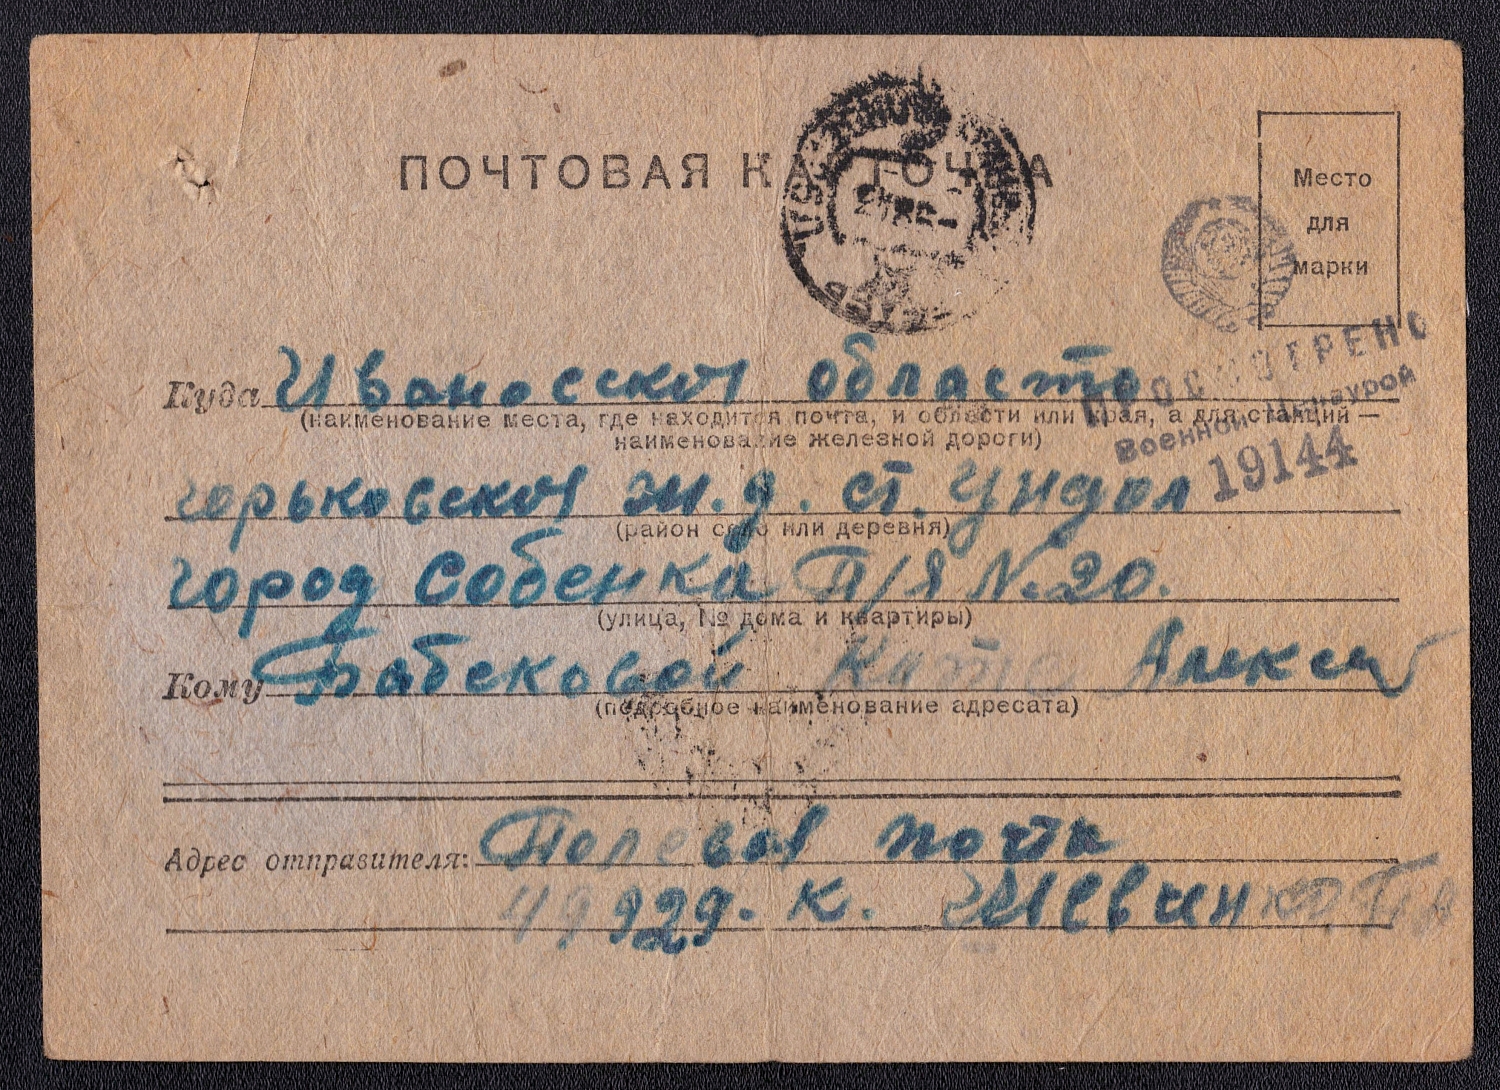 ПОЧТОВАЯ КАРТОЧКА
Место
для
марки
ПРОСМОТРЕНО
Военной Цензурой
19144
Куда Ивановской область
(наименование места, где находится почта, и области или края, а для станций —
наименование железной дороги)
горьковской ж.д. ст. Ундол
(район село или деревня)
город Собенка П/Я №20.
(улица, № дома и квартиры)
Кому Бабековой Кате Алексе
(подробное наименование адресата)
Адрес отправителя: Полевая почта
49929. к. Шевченко